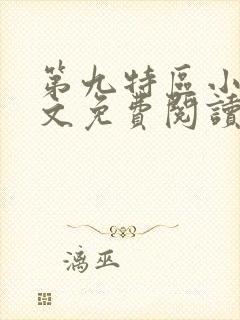 第九特區小
文免費閱讀
漓巫